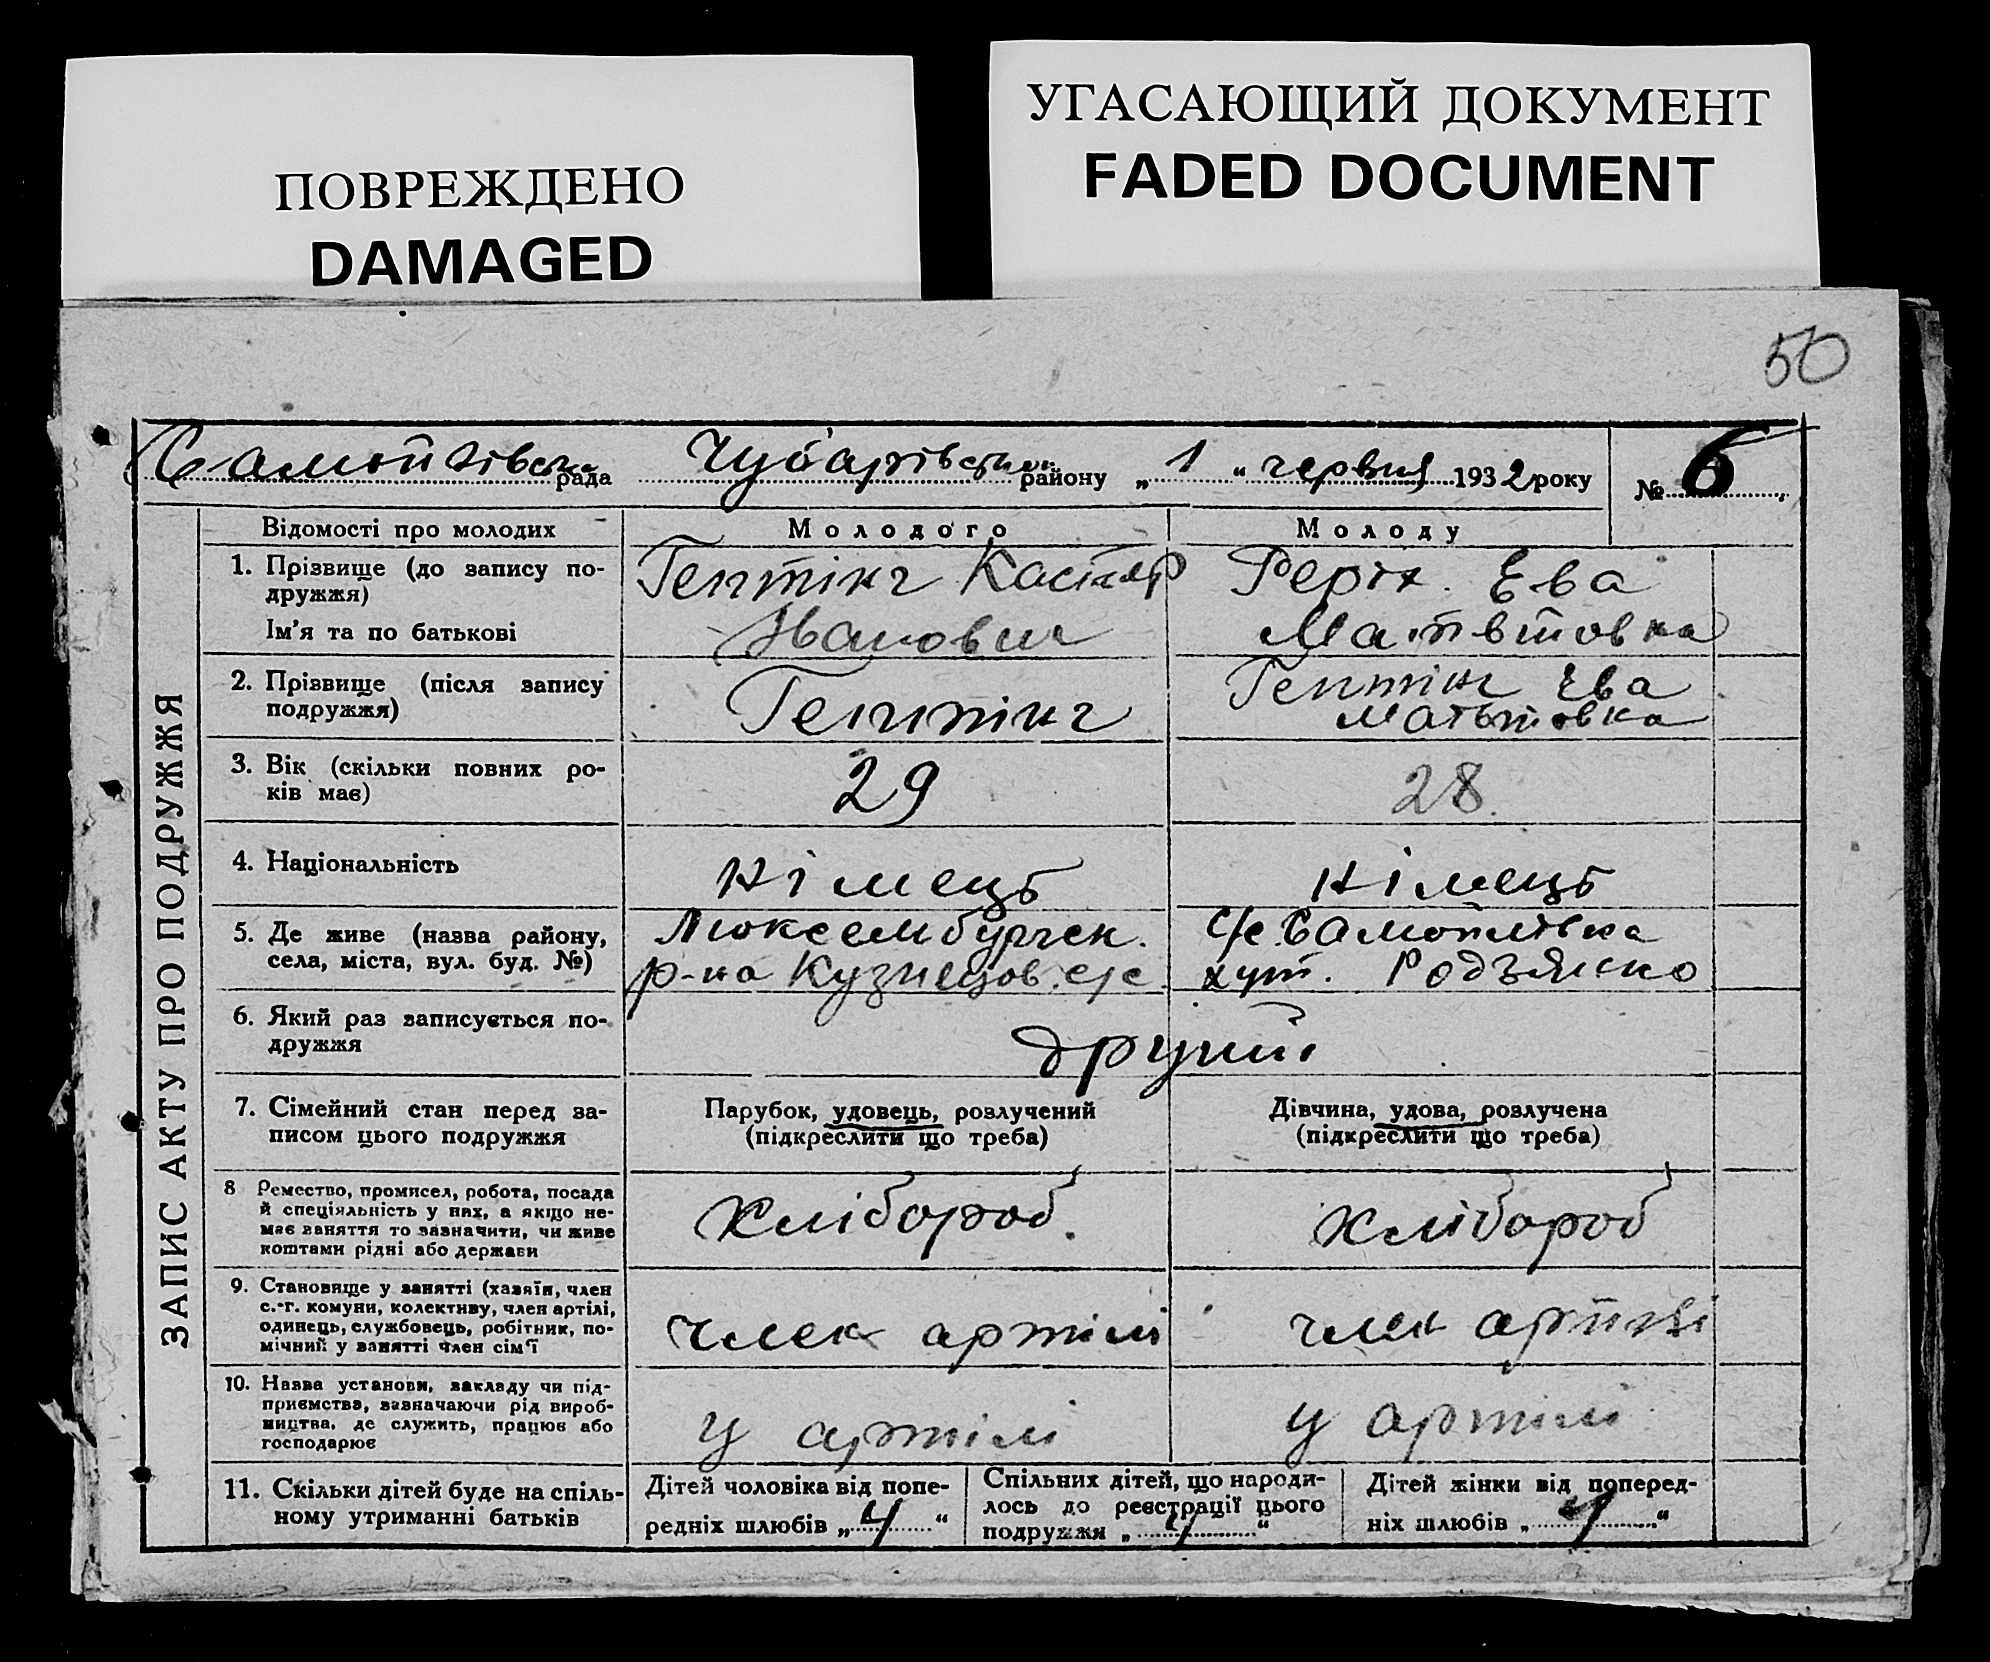 ПОВРЕЖДЕНО
DAMAGED
УГАСАЮЩИЙ ДОКУМЕНТ
FADED DOCUMENT
50
рада Чубарівськ району „ 1 “ червня 1932 року № 6
ЗАПИС АКТУ ПРО ПОДРУЖЖЯ
Відомості про молодих
Молодого
Молоду
1. Прізвище (до запису по-
дружжя)
Ім’я та по батькові
Гептінг Каспар
Іванович
Реріх. Ева
2. Прізвище (після запису
подружжя)
Гептінг
Гептінг Ева
3. Вік (скільки повних ро-
ків має)
29
28
4. Національність
німець
німець
5. Де живе (назва району,
села, міста, вул. буд. №)
Люксембургск.
р-на Кузнецов. с/с
с/с. Самойлівка
хут. Родзянко
6. Який раз записується по-
дружжя
другий
7. Сімейний стан перед за-
писом цього подружжя
Парубок, удовець, розлучений
(підкреслити що треба)
Дівчина, удова, розлучена
(підкреслити що треба)
8 Ремество, промисел, робота, посада
й спеціяльність у них, а якщо не-
має заняття то зазначити, чи живе
коштами рідні або держави
Хлібороб.
Хлібороб
9. Становище у занятті (хазяїн, член
с.-г. комуни, колективу, член артілі,
одинець, службовець, робітник, по-
мічний у занятті член сім’ї
член артілі
член артілі
10. Назва установи, закладу чи під-
приємства, зазначаючи рід вироб-
ництва, де служить, працює або
господарює
у артілі
у артілі
11. Скільки дітей буде на спіль-
ному утриманні батьків
Дітей чоловіка від попе-
редніх шлюбів „ 4 “
Спільних дітей, що народи-
лось до реєстрації цього
подружжя „ “
Дітей жінки від поперед-
ніх шлюбів „ “